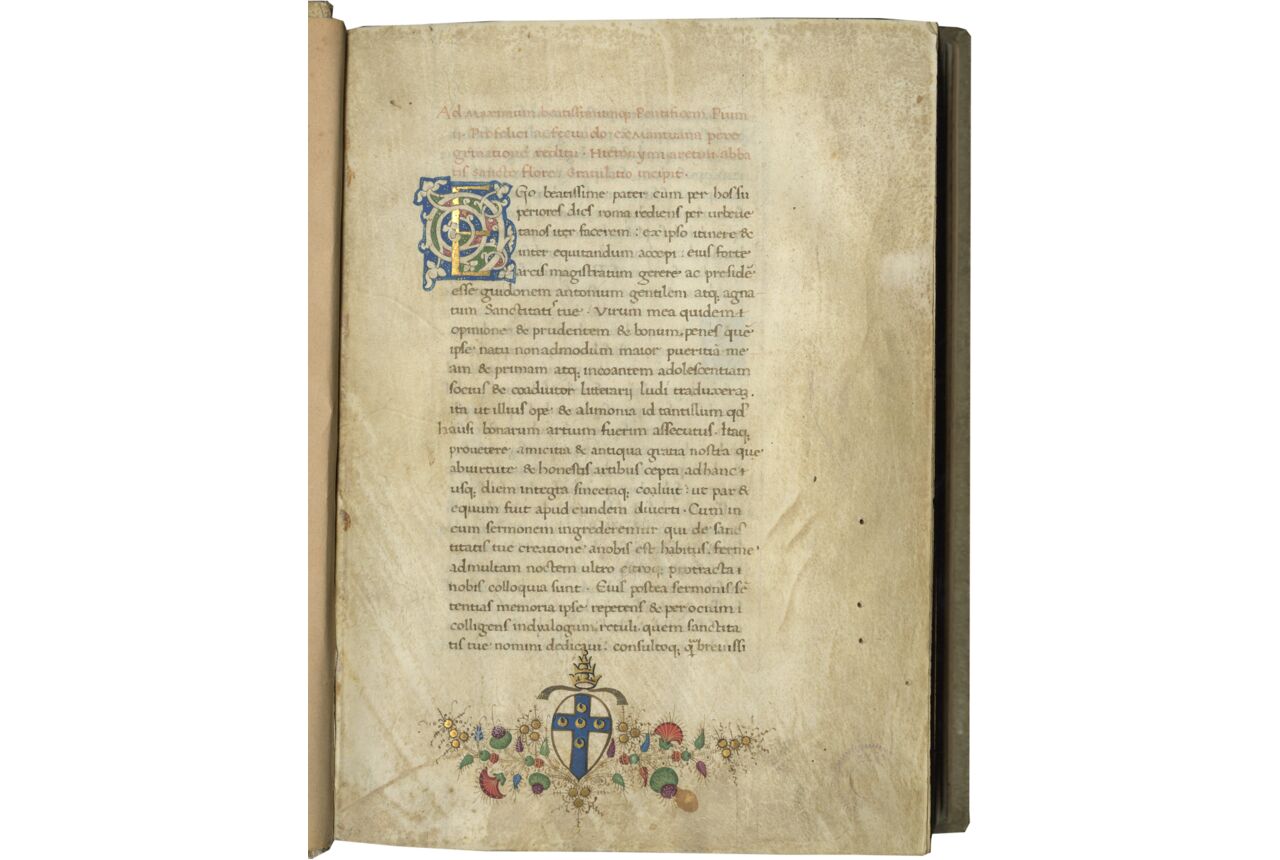 Ad Maximum beatissimumq; Pontificem Pium
ii. Profelici ac fecundo exMantuana pere
grinatione reditu. Hieronymi aretini abba
tis sancto flore. Gratulatio incipit.
EGo beatissime pater cum per hos su
periores dies roma rediens per urbeue
tanos iter facerem: ex ipso itinere &
inter equitandum accepi: eius forte
arcis magistratum gerere ac presidē
esse guidonem antonium gentilem atq; agna
tum Sanctitati tue. Virum mea quidem
opinione & prudentem & bonum, penes quē
ipse natu nonadmodum maior pueritiā me
am & primam atq; incoantem adolescentiam
socius & coadiutor litterarij ludi traduxeraƺ.
ita ut illius ope & alimonia id tantillum qd̄
hausi bonarum artium fuerim assecutus. Itaq;
pro uetere amicitia & antiqua gratia nostra que
abuirtute & honestis artibus cepta adhanc
usq; diem integra sinceraq; coaluit: ut par &
equum fuit apud eundem diuerti. Cum in
cum sermonem ingrederemur qui de sanc
titatis tue creatione anobis est habitus. ferme
admultam noctem ultro citroq; protracta i
nobis colloquia sunt. Eius postea sermonis sē
tentias memoria ipse repetens & per ocium i
colligens indyalogum, retuli. quem sanctita
tis tue nomini dedicaui: consultoq; q̄ breuissi